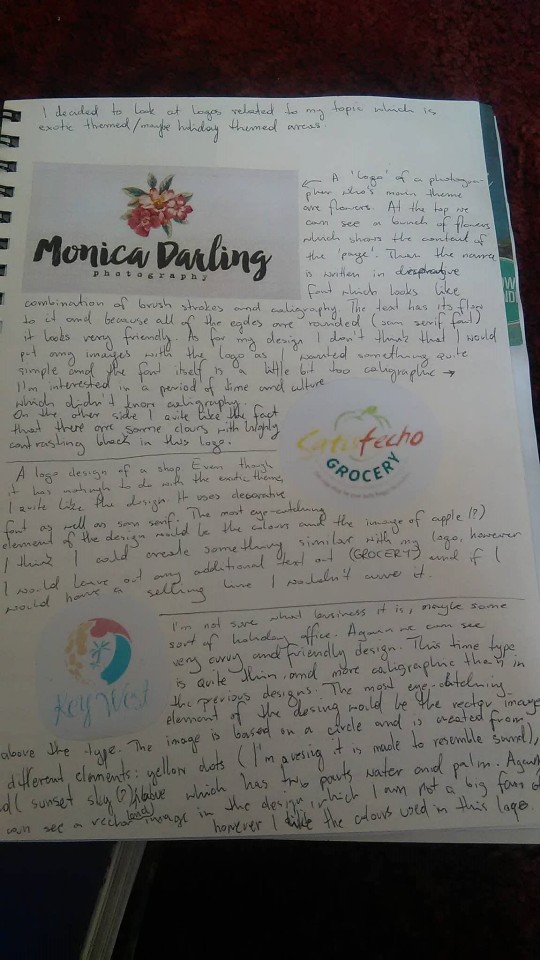 I decided to look at logos related to my topic which is
exotic themed/maybe holiday themed areas.
← A 'logo' of a photogra-
pher who's main theme
are flowers. At the top we
can see a bunch of flowers
which shows the context of
the 'page'. Than the name
is written in
font which looks like
Monica Darling
photography
combination of brush strokes and caligraphy. The text has its flow
to it and because all of the egdes are rounded (san serif font)
it looks very friendly. As for my design I don't think that I would
put any images with the logo as I wanted something quite
simple and the font itself is a little bit too caligraphic →
I'm interested in a period of time and culture
which didn't know caligraphy.
On the other side I quite like the fact
that there are some clours with highly
contrasting black in this logo.
Catisfecho
GROCERY
A logo design of a shop. Even though
it has notmuch to do with the exotic theme,
I quite like the design. It uses decorative
font as well as san serif. The most eye-catching
element of the design would be the colours and the image of apple (?)
I think I could create something similar with my logo, however
I would leave out any additional text out (GROCERY) and if I
would have a selling line I wouldn't curve it.
I'm not sure what business it is, maybe some
sort of holiday office. Again we can see
very curvy and friendly design. This time type
is quite thin and more caligraphic than in
the pervious designs. The most eye-catching
element of the desing would be the vector image
Key West
above the type. The image is based on a circle and is created from
different elements: yellow dots (I'm guesing it is made to resemble sand),
sunset sky (?) above which has two parts water and palm. Again
can see a vector image in the design which I am not a big fan of
however I like the colours used in this logo.